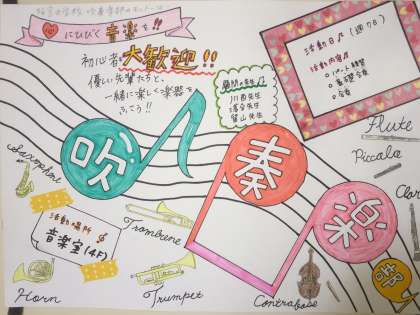 心にひびく音楽を!!
初心者も大歓迎!!
優しい先輩たちと、
一緒に楽しく楽器を
ふこう!!
顧問の先生
川西先生
活動日♪(週7日)
活動内容♪
パート練習
基礎合奏
合奏
吹奏楽部
Flute
Piccolo
Saxophone
Trombone
活動場所
音楽室(4F)
Horn
Trumpet
Contrabass